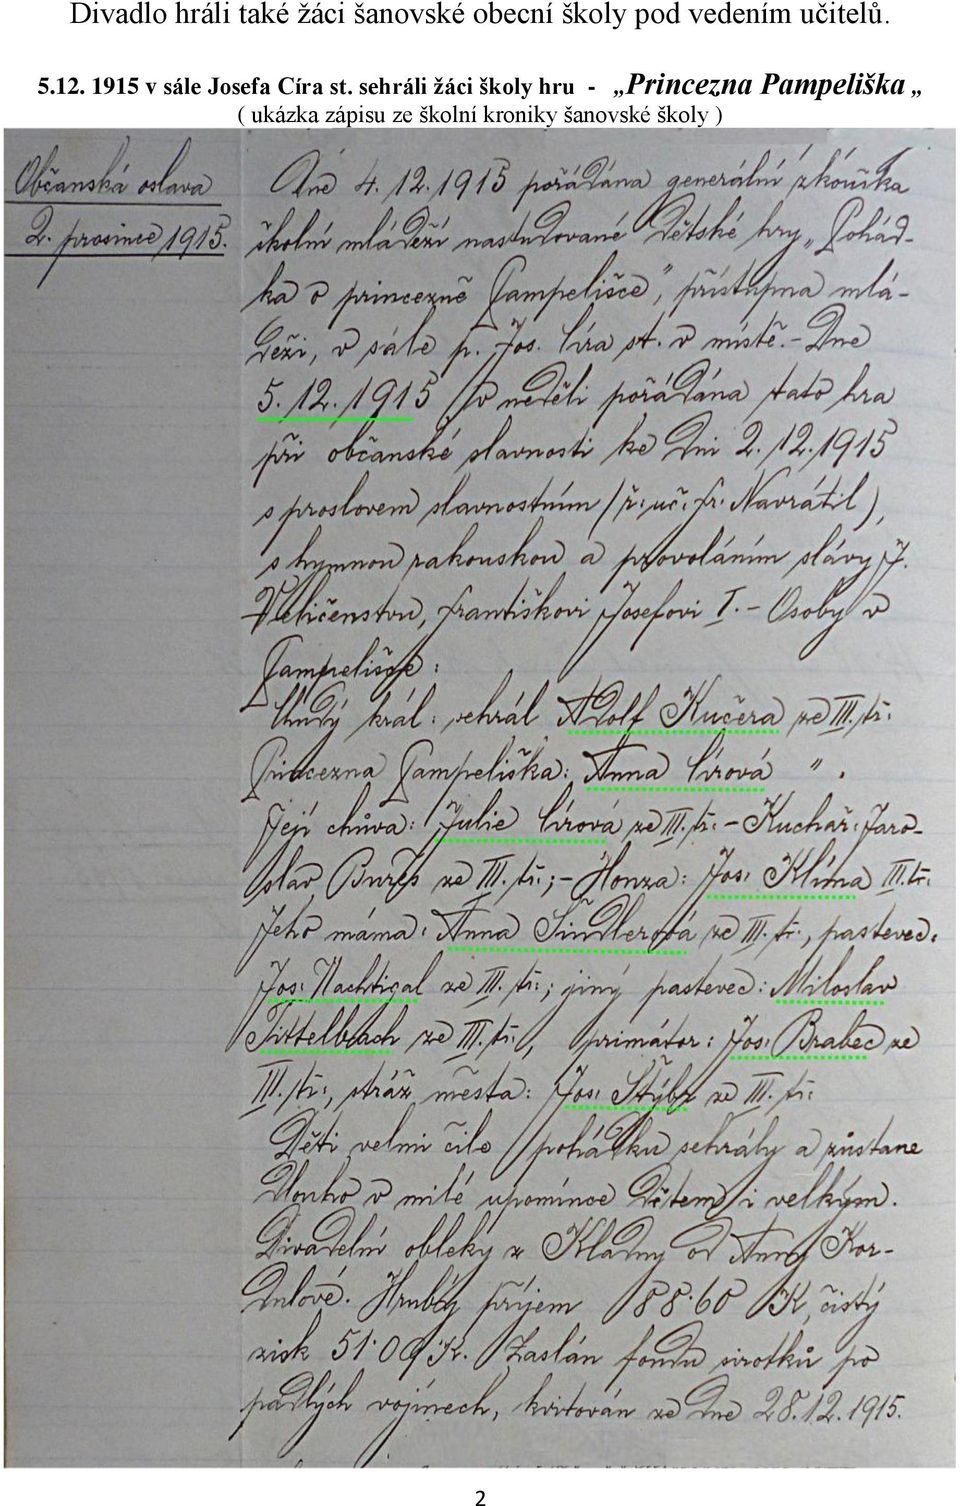 Divadlo hráli také žáci šanovské obecní školy pod vedením učitelů.
5.12. 1915 v sále Josefa Círa st. sehráli žáci školy hru - „Princezna Pampeliška „
( ukázka zápisu ze školní kroniky šanovské školy )
Občanská oslava
2. prosince 1915.
Dne 4. 12. 1915 pořádána generální zkouška
školní mládeží nastudované dětské hry „Pohád-
ka o princezně Pampelišce", přístupna mlá-
deži, v sále p. Jos. Círa st. v místě. - Dne
5. 12. 1915 v neděli pořádána tato hra
při občanské slavnosti ke dni 2. 12. 1915
s proslovem slavnostním (ř. uč. Fr. Navrátil),
s hymnou rakouskou a provoláním slávy J.
Veličenstvu, Františkovi Josefovi I. - Osoby v
Pampelišce:
Chudý král: sehrál Adolf Kučera ze III. tř:
Princezna Pampeliška: Anna Círová " .
Její chůva: Julie Círová ze III. tř: - Kuchař: Jaro-
slav Bureš ze III. tř:; - Honza: Jos: Klíma III. tř:
Jeho máma: Anna Šindlerová ze III. tř:, pastevec:
Jos: Nachtigal ze III. tř:; jiný pastevec: Miloslav
Tittelbach ze III. tř:, primátor: Jos: Brabec ze
III. tř:, stráž města: Jos: Štýbr ze III. tř:
Děti velmi čile pohádku sehrály a zůstane
dlouho v milé upomínce dětem i velkým.
Divadelní obleky z Kladna od Anny Kor-
dulové. Hrubý příjem 88.60 K, čistý
zisk 51.09 K. Zaslán fondu sirotků po
padlých vojínech, kvitován ze dne 28. 12. 1915.
2